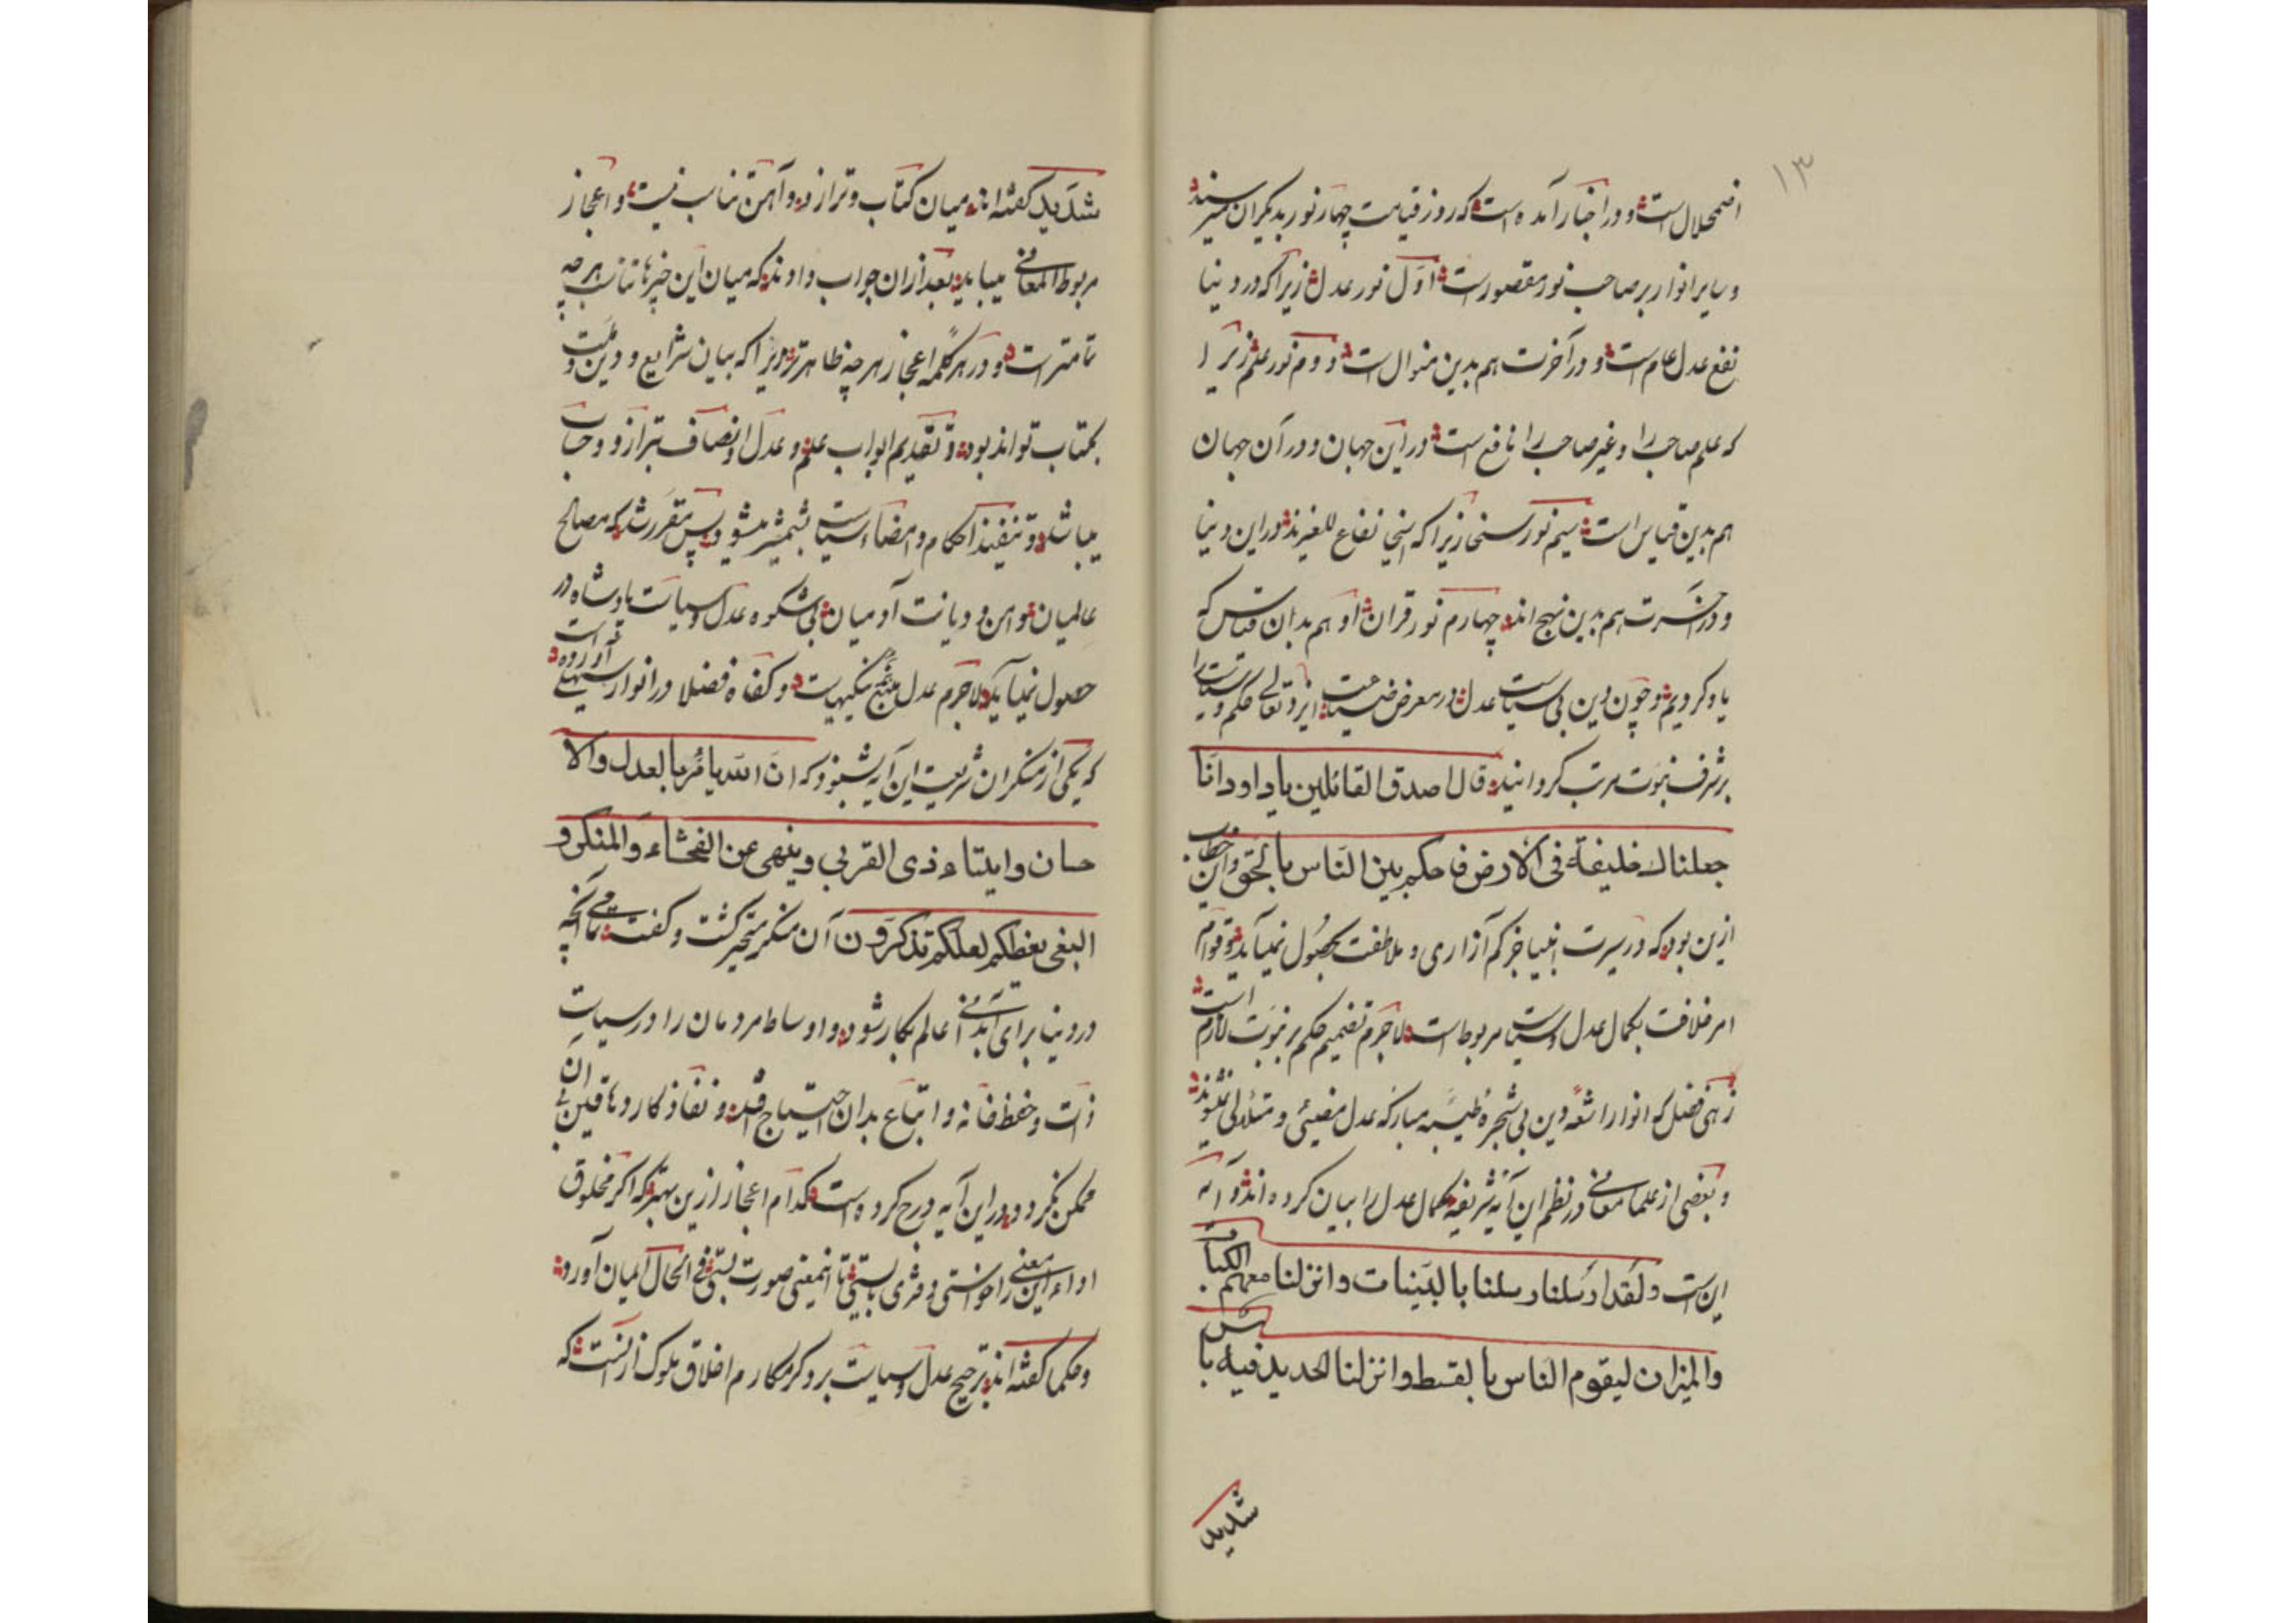 ۱۳
اضمحلال است و در اخبار آمده است که روز قیامت چهار نور بدیگران میرسند
و سایر انوار بر صاحب نور مقصورست اوّل نور عدل زیرا که در دنیا
نفع عدل عام است و در آخرت هم بدین منوال است دوم نور علم زیرا
که علم صاحب را و غیر صاحب را نافع است در این جهان و در آن جهان
هم بدین قیاس است سیم نور سخا زیرا که اسخیا نفاع للغیرند در این دنیا
و در آخرت هم بدین نهج اند چهارم نور قران او هم بدان قیاس که
یاد کردیم و چون دین بی سیاست عدل در معرض ایزد تعالی حکم و سیاست را
بر شرف نبوّت مرتب گردانید قال اصدق القائلین یا داود انّا
جعلناک خلیفة فی الارض فاحکم بین النّاس بالحق و این خطاب
ازین بود که در سیرت انبیا جز کم آزاری و ملاطفت بحصول نمیآید و قوام
امر خلافت بکمال عدل و سیاست مربوط است لاجرم تضمیم حکم بر نبوّت لازم است
زهی فضل که انوار اشعّه دین بی شجره طیّبه مبارکه عدل مضیئی و متلالی نشوند
و بعضی از علما معانی در نظم این آیه شریفه کمال عدل را بیان کرده اند و آیه
این است و لقد ارسلنا رسلنا بالبیّنات و انزلنا معهم الکتاب
والمیزان لیقوم النّاس بالقسط و انزلنا الحدید فیه باس
شدید
شدید گفته اند میان کتاب و ترازو و آهن تناسب نیست و اعجاز
مربوط المعانی میباید بعد از ان جواب داوند که میان این خبرها تناسب هر چه
تامتر است و در هر کلمه اعجاز هر چه ظاهرتر زیرا که بیان شرایع و دین و ملت
بکتاب تواند بود و تقدیم ابواب علم و عدل و انصاف بترازو و حساب
میباشد و تنفیذ احکام و امضاء سیاست بشمشیر میشود پس مقرر شد که مصالح
عالمیان و امن و دیانت آدمیان بی شکوه عدل و سیاست پادشاه در
حصول نمیآید لاجرم عدل منتج نیکیهاست و کفاه فضلا در انوار سهیلی آورده است
که یکی از منکران شریعت این آیه شنود که انّ الله یامر بالعدل والا
حسان و ایتاء ذی القربی و ینهی عن الفحشاء و المنکر و
البغی یعظکم لعلکم تذکرون آن منکر متحیر گشت و گفت تمامی آنچه
در دنیا برای آبدانی عالم بکار شود و اوساط مردمان را در سیاست
ذات و حفظ خانه و اتباع بدان احتیاج افتد و نفاذ کار دهاقین بی آن
ممکن نگردد در این آیه درج کرده است کدام اعجاز ازین بهتر که اگر مخلوق
اداء این معنی را خواستی دفتری بایستی تا اینمعنی صورت بستی فی الحال ایمان آورد
و حکما گفته اند ترجیح عدل و سیاست بر دگر مکارم اخلاق ملوک از آنست که